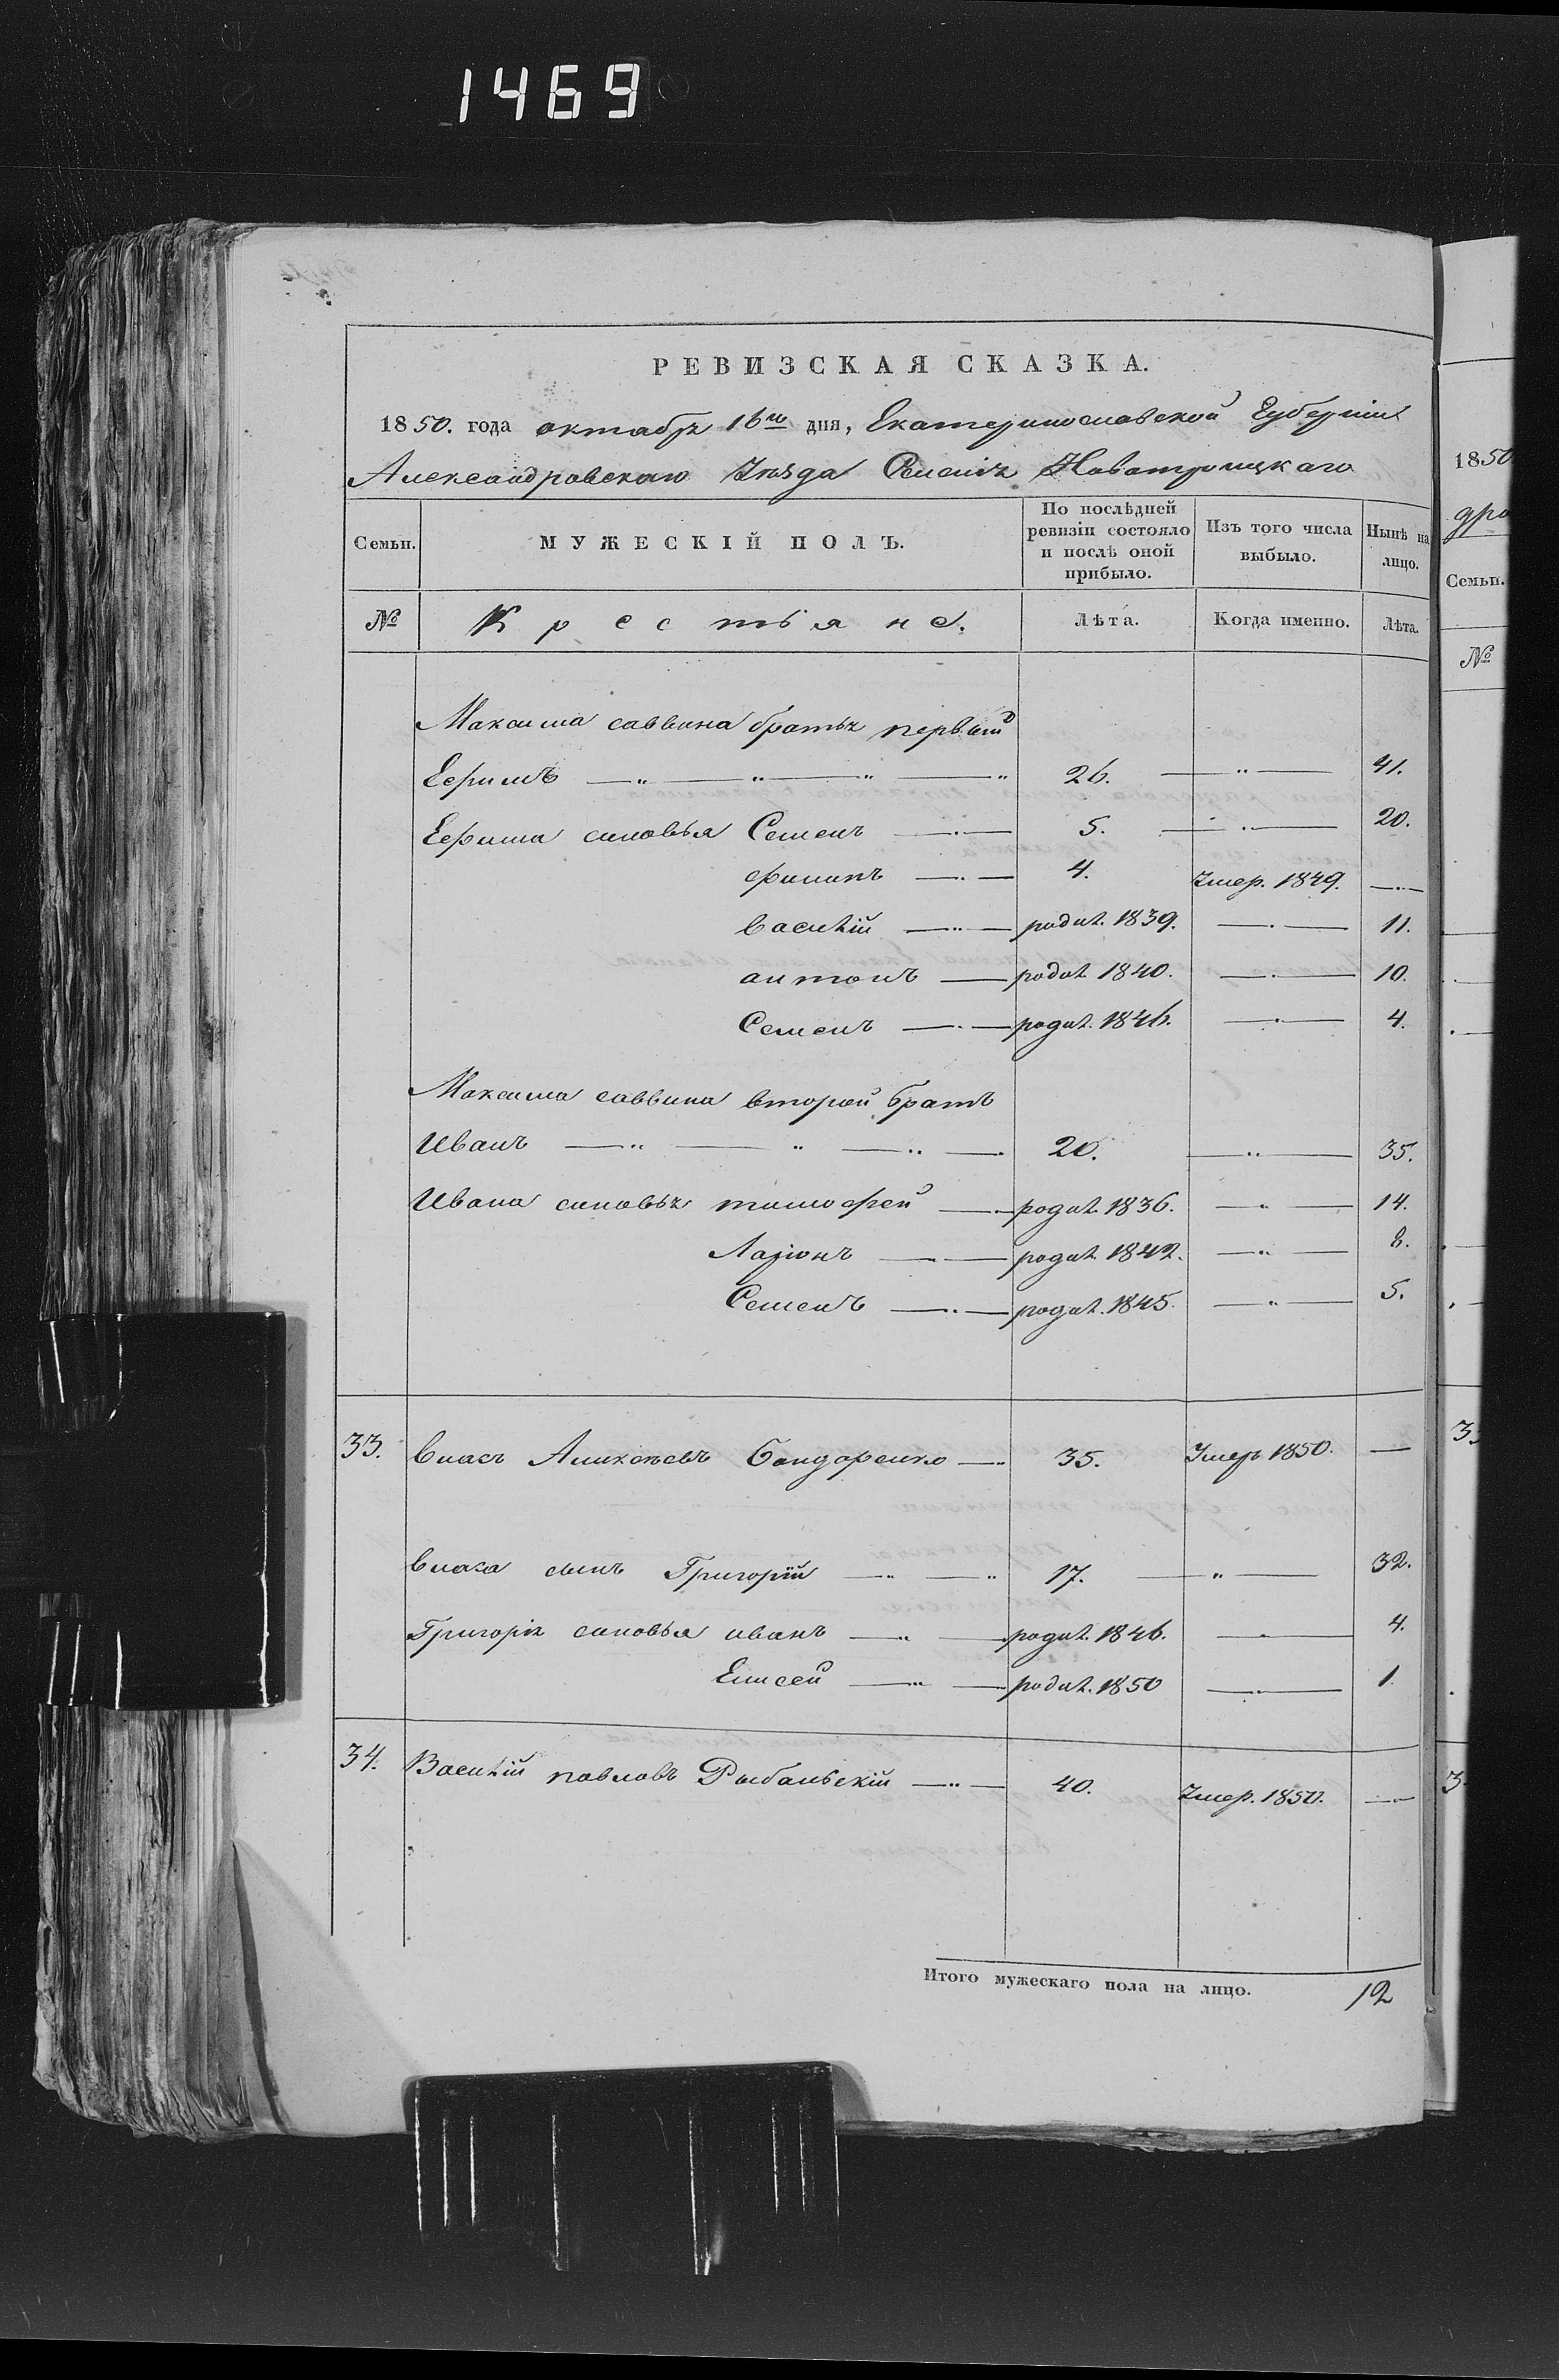 1469
РЕВИЗСКАЯ СКАЗКА.
1850. года октабря 16го дня, Екатеринославской Губерніи
Александровскаго Уезда Селенія Новотроицкаго
Семьи. МУЖЕСКІЙ ПОЛЪ. По послѣдней ревизіи состояло и послѣ оной прибыло. Изъ того числа выбыло. Нынѣ на лицо.
№ Крестьяне. Лѣта. Когда именно. Лѣта.
Максима саввина братья первый
Ефимъ 26. 41.
Ефима сыновья Семенъ 5. 20.
филипъ 4. Умер. 1849.
василій родил. 1839. 11.
антонъ родил. 1840. 10.
Семенъ родил. 1846. 4.
Максима саввина второй братъ
Иванъ 20. 35.
Ивана сыновья тимофей родил. 1836. 14.
Ларіонъ родил. 1842. 8.
Семенъ родил. 1845. 5.
33. власъ Аликсѣевъ Бондаренко 35. Умеръ 1850.
власа сынъ Григорій 17. 32.
Григорія сыновья иванъ родил. 1846. 4.
Елисей родил. 1850 1
34. Василій павловъ Рыбальскій 40. Умер. 1850.
Итого мужескаго пола на лицо. 12
1850
дро
Семьи.
№